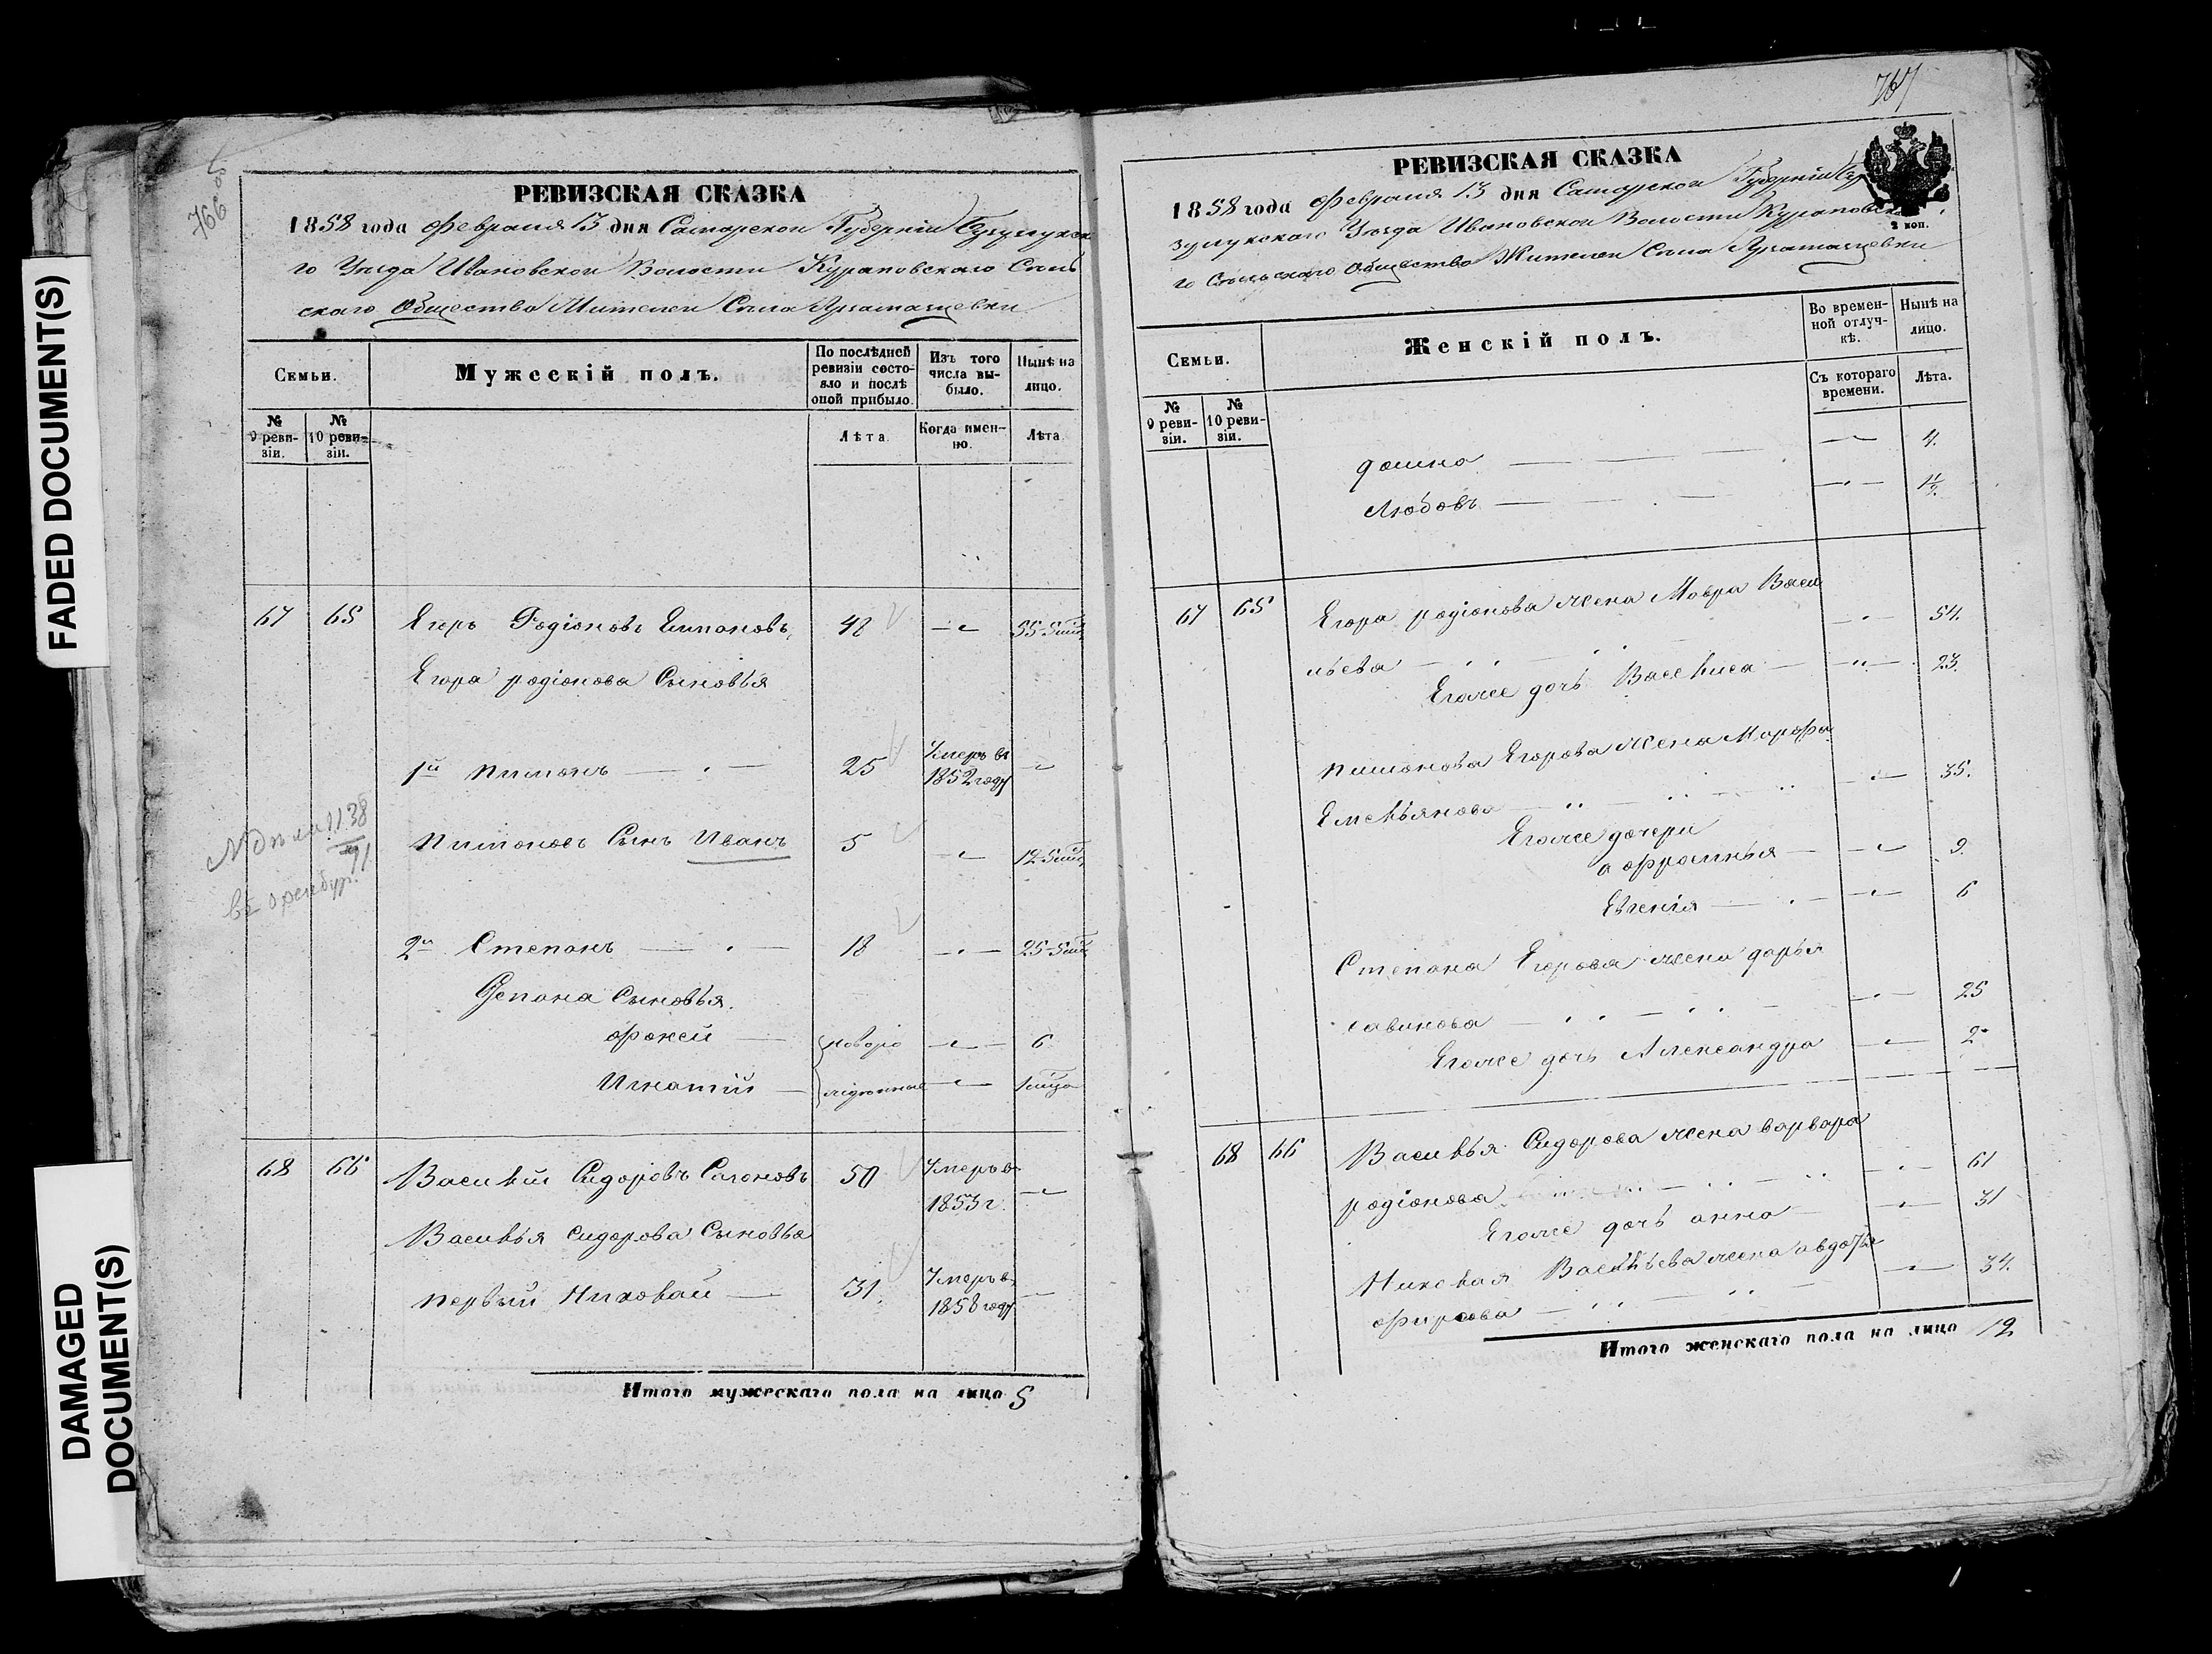 FADED DOCUMENT(S)
DAMAGED
DOCUMENT(S)
766
РЕВИЗСКАЯ СКАЗКА
1858 года Февраля 13 дня Самарской Губерніи Бузулукска
го Уѣзда Ивановской Волости Кураповскаго Сель
скаго Общества Жителей Села
Семьи.
Мужескій полъ.
По послѣдней ревизіи состояло и послѣ оной прибыло.
Изъ того числа выбыло.
Нынѣ на лицо.
№ 9 ревизіи.
№ 10 ревизіи.
Лѣта.
Когда именно.
Лѣта.
67 65 Егоръ Родіоновъ 48 55
Егора родіонова Сыновья
1й Пимонъ 25 Умеръ въ 1852 году
№ дѣла 1138
91
въ оренбур.
Пимоновъ Сынъ Иванъ 5 12
2й Степанъ 18 25
Степана Сыновья.
фокей новоро 6
Игнатій жденные
68 66 Василій Сидоровъ 50 Умеръ въ
1853 г.
Василья Сидорова Сыновья
первый Николай 31 Умеръ въ
1858 году
Итого мужескаго пола на лицо 5
767
РЕВИЗСКАЯ СКАЗКА
1858 года Февраля 13 дня Самарской Губерніи Бу
зулукскаго Уѣзда Ивановской Волости Кураповска
2 коп.
го Сельскаго Общества Жителей Села
Семьи.
Женскій полъ.
Во временной отлучкѣ.
Нынѣ на лицо.
№ 9 ревизіи.
№ 10 ревизіи.
Съ котораго времени.
Лѣта.
домна 4.
Любовь
67 65 Егора родіонова жена Мавра Васи
льева 54.
Егоже дочь Василиса 23.
Пимонова Егорова жена Марфа
Емельянова 35.
Егоже дочери
афросинья 9.
Евгенія 6
Степана Егорова жена дарья
савинова 25
Егоже дочь Александра 2
68 66 Василья Сидорова жена варвара
родіонова 61
Егоже дочь анна 31
Николая Васильева жена авдотья
фирсова 34.
Итого женскаго пола на лицо 12